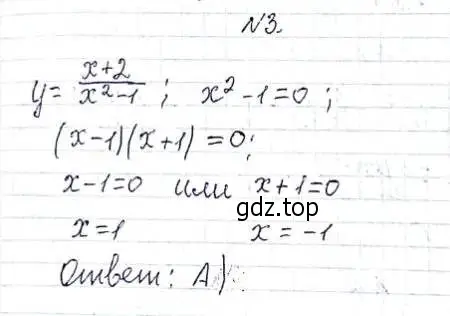 №3.
y = (x+2)/(x²-1) ; x² - 1 = 0 ;
(x-1)(x+1) = 0;
x-1=0 или x+1=0
gdz.top
x=1 x = -1
Ответ: А)